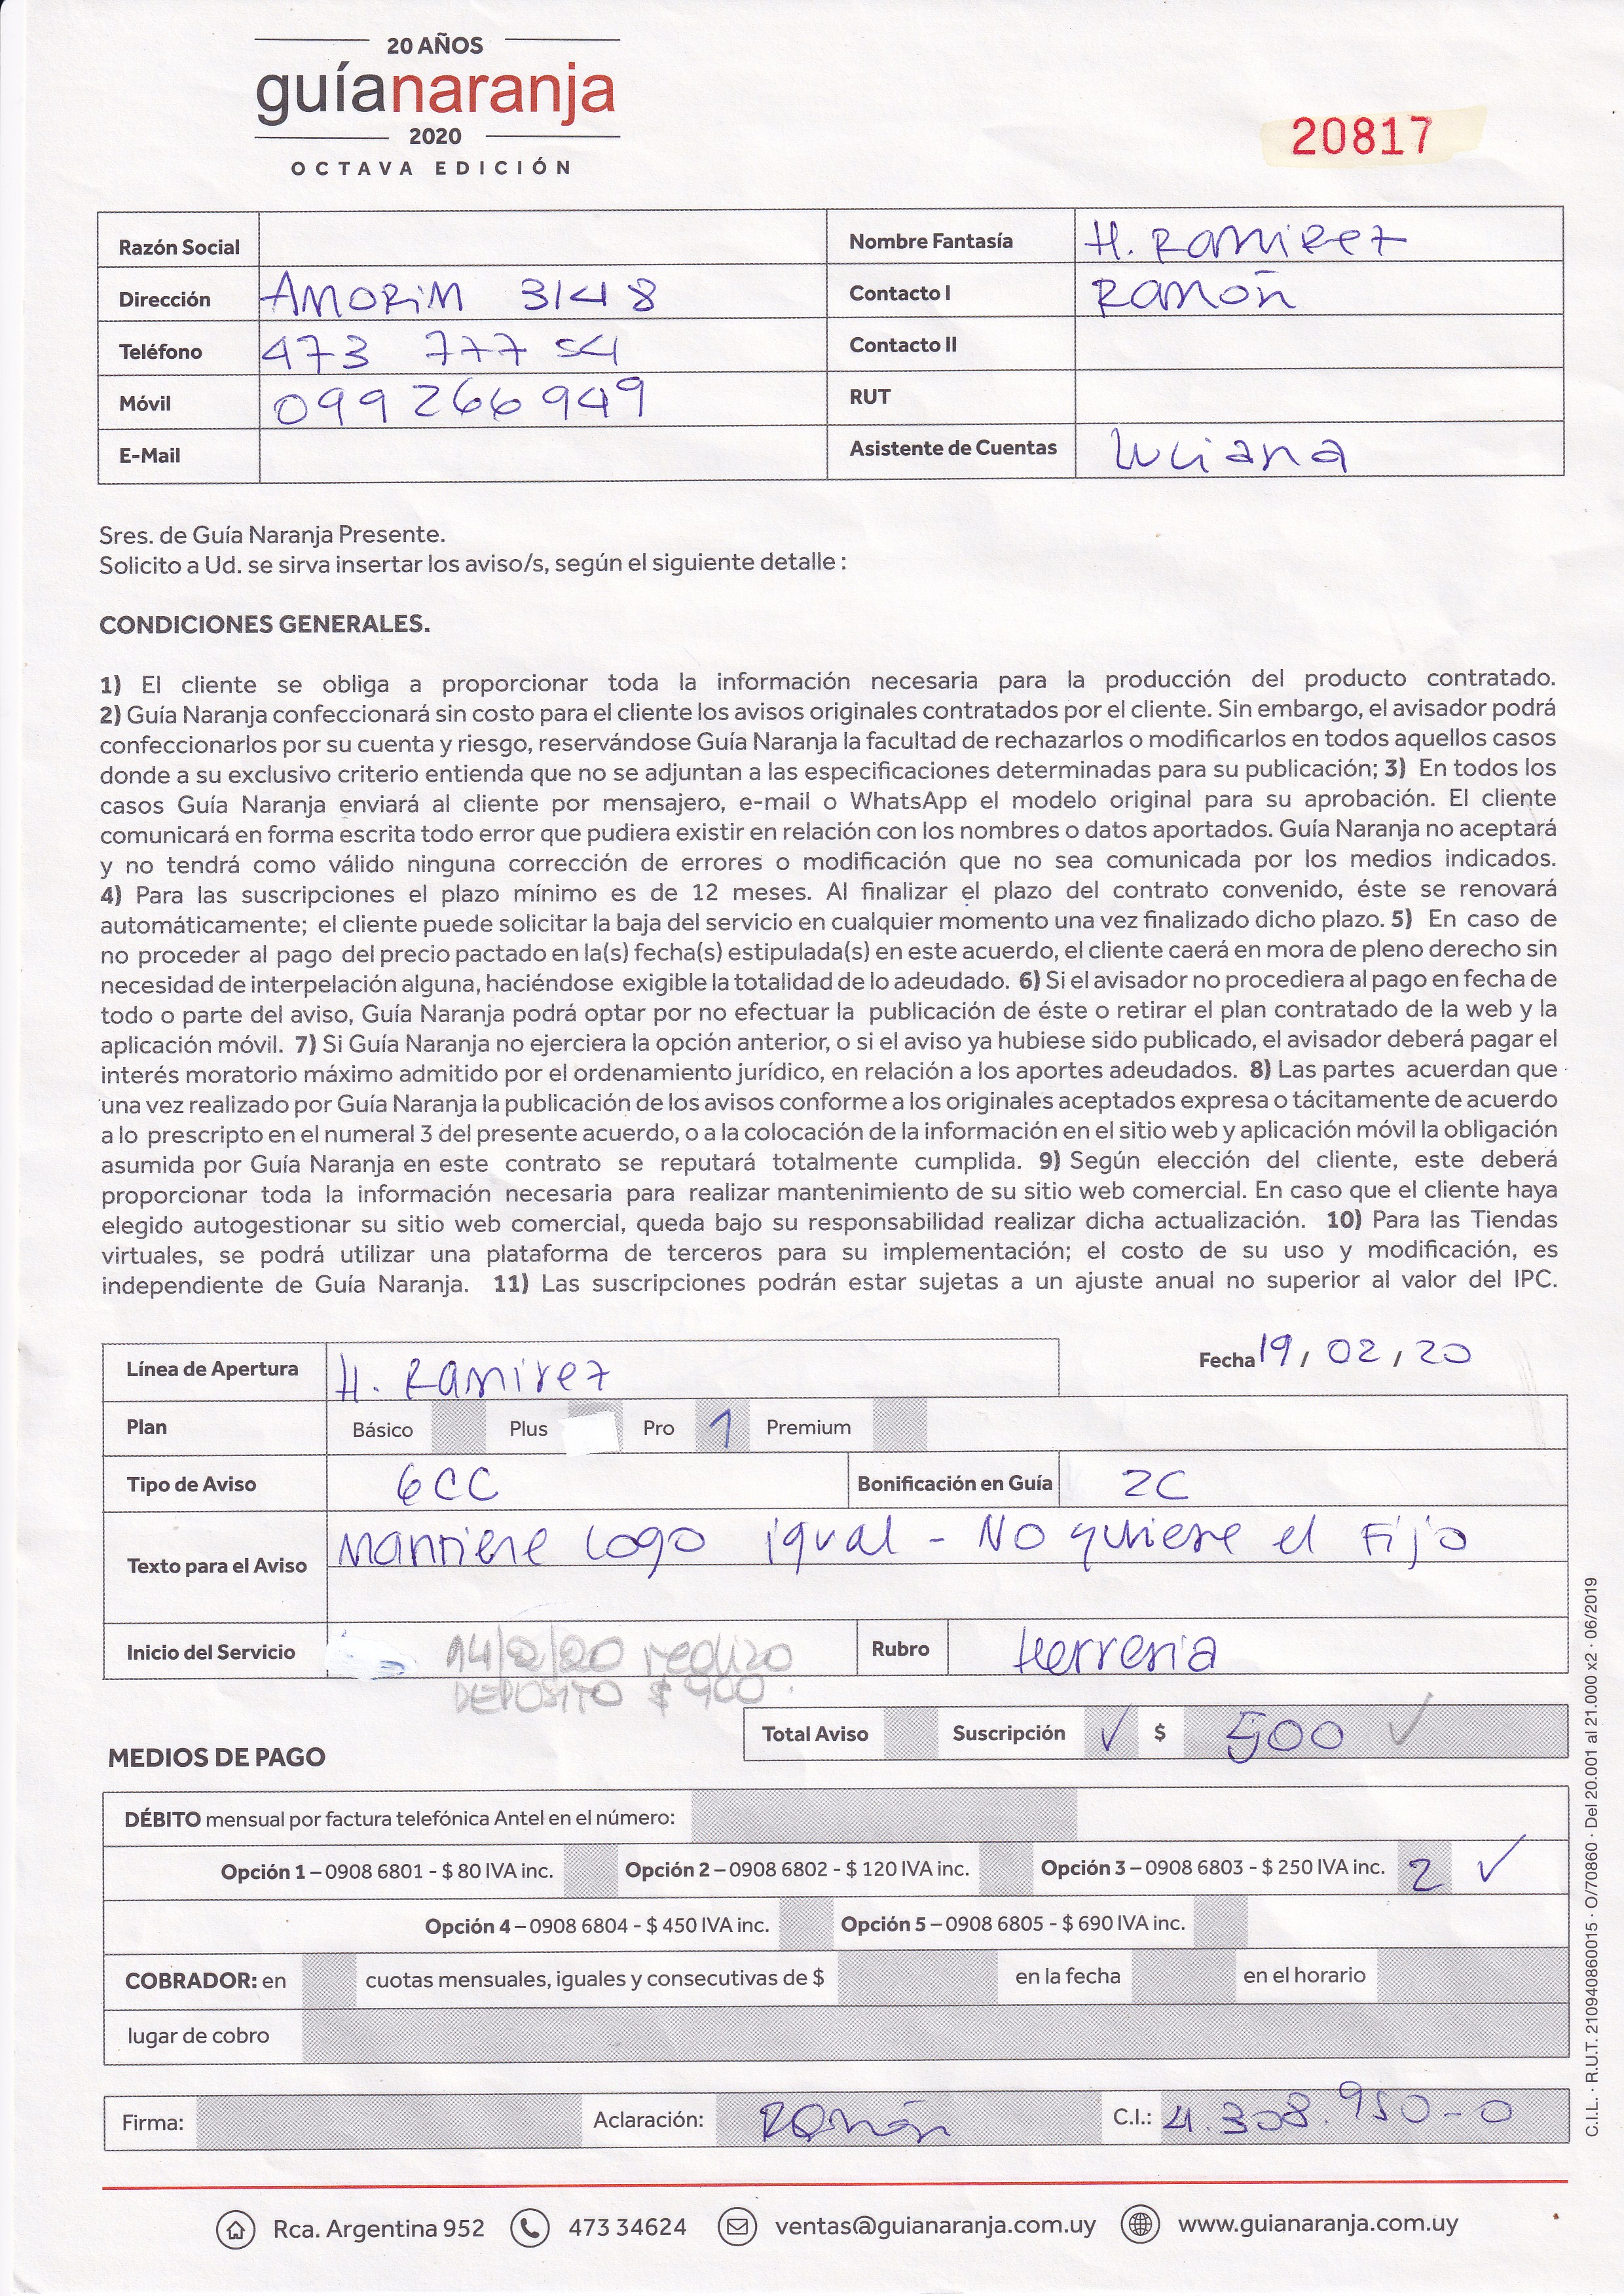 20 AÑOS
guíanaranja
2020
OCTAVA EDICIÓN
20817
Razón Social
Nombre Fantasía H. Ramirez
Dirección AMORIM 3148
Contacto I Ramón
Teléfono 473 777 54
Contacto II
Móvil 099 266 949
RUT
E-Mail
Asistente de Cuentas Luciana
Sres. de Guía Naranja Presente.
Solicito a Ud. se sirva insertar los aviso/s, según el siguiente detalle :
CONDICIONES GENERALES.
1) El cliente se obliga a proporcionar toda la información necesaria para la producción del producto contratado.
2) Guía Naranja confeccionará sin costo para el cliente los avisos originales contratados por el cliente. Sin embargo, el avisador podrá
confeccionarlos por su cuenta y riesgo, reservándose Guía Naranja la facultad de rechazarlos o modificarlos en todos aquellos casos
donde a su exclusivo criterio entienda que no se adjuntan a las especificaciones determinadas para su publicación; 3) En todos los
casos Guía Naranja enviará al cliente por mensajero, e-mail o WhatsApp el modelo original para su aprobación. El cliente
comunicará en forma escrita todo error que pudiera existir en relación con los nombres o datos aportados. Guía Naranja no aceptará
y no tendrá como válido ninguna corrección de errores o modificación que no sea comunicada por los medios indicados.
4) Para las suscripciones el plazo mínimo es de 12 meses. Al finalizar el plazo del contrato convenido, éste se renovará
automáticamente; el cliente puede solicitar la baja del servicio en cualquier momento una vez finalizado dicho plazo. 5) En caso de
no proceder al pago del precio pactado en la(s) fecha(s) estipulada(s) en este acuerdo, el cliente caerá en mora de pleno derecho sin
necesidad de interpelación alguna, haciéndose exigible la totalidad de lo adeudado. 6) Si el avisador no procediera al pago en fecha de
todo o parte del aviso, Guía Naranja podrá optar por no efectuar la publicación de éste o retirar el plan contratado de la web y la
aplicación móvil. 7) Si Guía Naranja no ejerciera la opción anterior, o si el aviso ya hubiese sido publicado, el avisador deberá pagar el
interés moratorio máximo admitido por el ordenamiento jurídico, en relación a los aportes adeudados. 8) Las partes acuerdan que
una vez realizado por Guía Naranja la publicación de los avisos conforme a los originales aceptados expresa o tácitamente de acuerdo
a lo prescripto en el numeral 3 del presente acuerdo, o a la colocación de la información en el sitio web y aplicación móvil la obligación
asumida por Guía Naranja en este contrato se reputará totalmente cumplida. 9) Según elección del cliente, este deberá
proporcionar toda la información necesaria para realizar mantenimiento de su sitio web comercial. En caso que el cliente haya
elegido autogestionar su sitio web comercial, queda bajo su responsabilidad realizar dicha actualización. 10) Para las Tiendas
virtuales, se podrá utilizar una plataforma de terceros para su implementación; el costo de su uso y modificación, es
independiente de Guía Naranja. 11) Las suscripciones podrán estar sujetas a un ajuste anual no superior al valor del IPC.
Línea de Apertura H. Ramirez
Fecha 19 / 02 / 20
Plan Básico Plus Pro 1 Premium
Tipo de Aviso 6CC Bonificación en Guía 2C
Texto para el Aviso Mantiene logo igual - NO quiere el Fijo
Inicio del Servicio 14/2/20 realizo
DEPOSITO $ 900.
Rubro Herreria
Total Aviso Suscripción ✓ $ 500 ✓
MEDIOS DE PAGO
DÉBITO mensual por factura telefónica Antel en el número:
Opción 1 – 0908 6801 - $ 80 IVA inc. Opción 2 – 0908 6802 - $ 120 IVA inc. Opción 3 – 0908 6803 - $ 250 IVA inc. 2 ✓
Opción 4 – 0908 6804 - $ 450 IVA inc. Opción 5 – 0908 6805 - $ 690 IVA inc.
COBRADOR: en cuotas mensuales, iguales y consecutivas de $ en la fecha en el horario
lugar de cobro
Firma: Aclaración: Ramón C.I.: 4.308.950-0
Rca. Argentina 952 473 34624 ventas@guianaranja.com.uy www.guianaranja.com.uy
C.I.L. · R.U.T. 210940860015 · O/70860 · Del 20.001 al 21.000 x2 · 06/2019